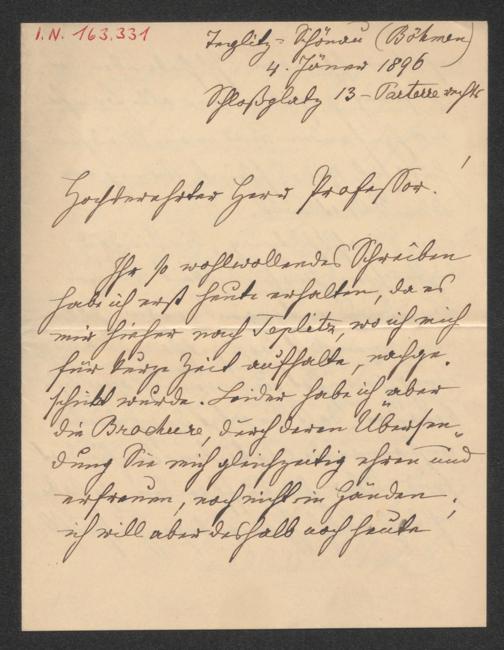 I.N. 163.331
Teplitz-Schönau (Böhmen)
4. Jänner 1896
Schloßplatz 13 – Parterre rechts
Hochverehrter Herr Professor!
Ihr so wohlwollendes Schreiben
habe ich erst heute erhalten, da es
mir hieher nach Teplitz, wo ich mich
für kurze Zeit aufhalte, nachge-
schickt wurde. Leider habe ich aber
die Brochure, durch deren Übersen-
dung Sie mich gleichzeitig ehren und
erfreuen, noch nicht in Händen;
ich will aber deshalb noch heute